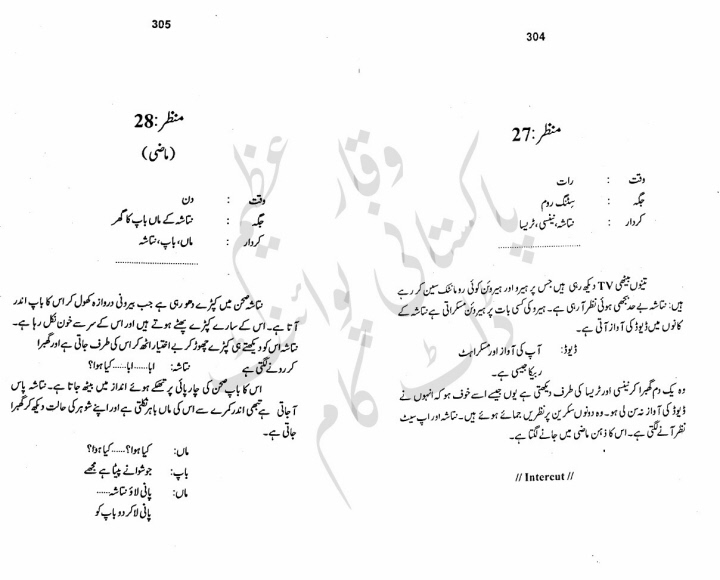 304
منظر:27
وقت : رات
جگہ : سِٹنگ روم
کردار : نتاشہ، نینسی، ٹریسا
تینوں بیٹھی TV دیکھ رہی ہیں جس پر ہیرو اور ہیروئن کوئی رومانٹک سین کر رہے
ہیں: نتاشہ بے حد بجھی ہوئی نظر آ رہی ہے۔ ہیرو کی کسی بات پر ہیروئن مسکراتی ہے نتاشہ کے
کانوں میں ڈیوڈ کی آواز آتی ہے۔
ڈیوڈ: آپ کی آواز اور مسکراہٹ
ربیکا جیسی ہے۔
وہ یک دم گھبرا کر نینسی اور ٹریسا کی طرف دیکھتی ہے یوں جیسے اسے خوف ہو کہ انہوں نے
ڈیوڈ کی آواز نہ سن لی ہو۔ وہ دونوں سکرین پر نظریں جمائے ہوئے ہیں۔ نتاشہ اور اپ سیٹ
نظر آنے لگتی ہے۔ اس کا ذہن ماضی میں جانے لگتا ہے۔
// Intercut //
305
منظر:28
(ماضی)
وقت : دن
جگہ : نتاشہ کے ماں باپ کا گھر
کردار : ماں، باپ، نتاشہ
نتاشہ صحن میں کپڑے دھو رہی ہے جب بیرونی دروازہ کھول کر اس کا باپ اندر
آتا ہے۔ اس کے سارے کپڑے پھٹے ہوتے ہیں اور اس کے سر سے خون نکل رہا ہے۔
نتاشہ اس کو دیکھتے ہی کپڑے چھوڑ کر بے اختیار اٹھ کر اس کی طرف جاتی ہے اور گھبرا
کر رونے لگتی ہے
نتاشہ: ابا......ابا......کیا ہوا؟
اس کا باپ صحن کی چارپائی پر تھکے ہوئے انداز میں بیٹھ جاتا ہے۔ نتاشہ پاس
آ جاتی ہے تبھی اندر کمرے سے اس کی ماں باہر نکلتی ہے اور اپنے شوہر کی حالت دیکھ کر گھبرا
جاتی ہے۔
ماں: کیا ہوا؟......کیا ہوا؟
باپ: جوشوا نے پیٹا ہے مجھے
ماں: پانی لاؤ نتاشہ......
پانی لا کر دو باپ کو
وقار عظیم
پاکستانی پوائنٹ
ڈاٹ کام